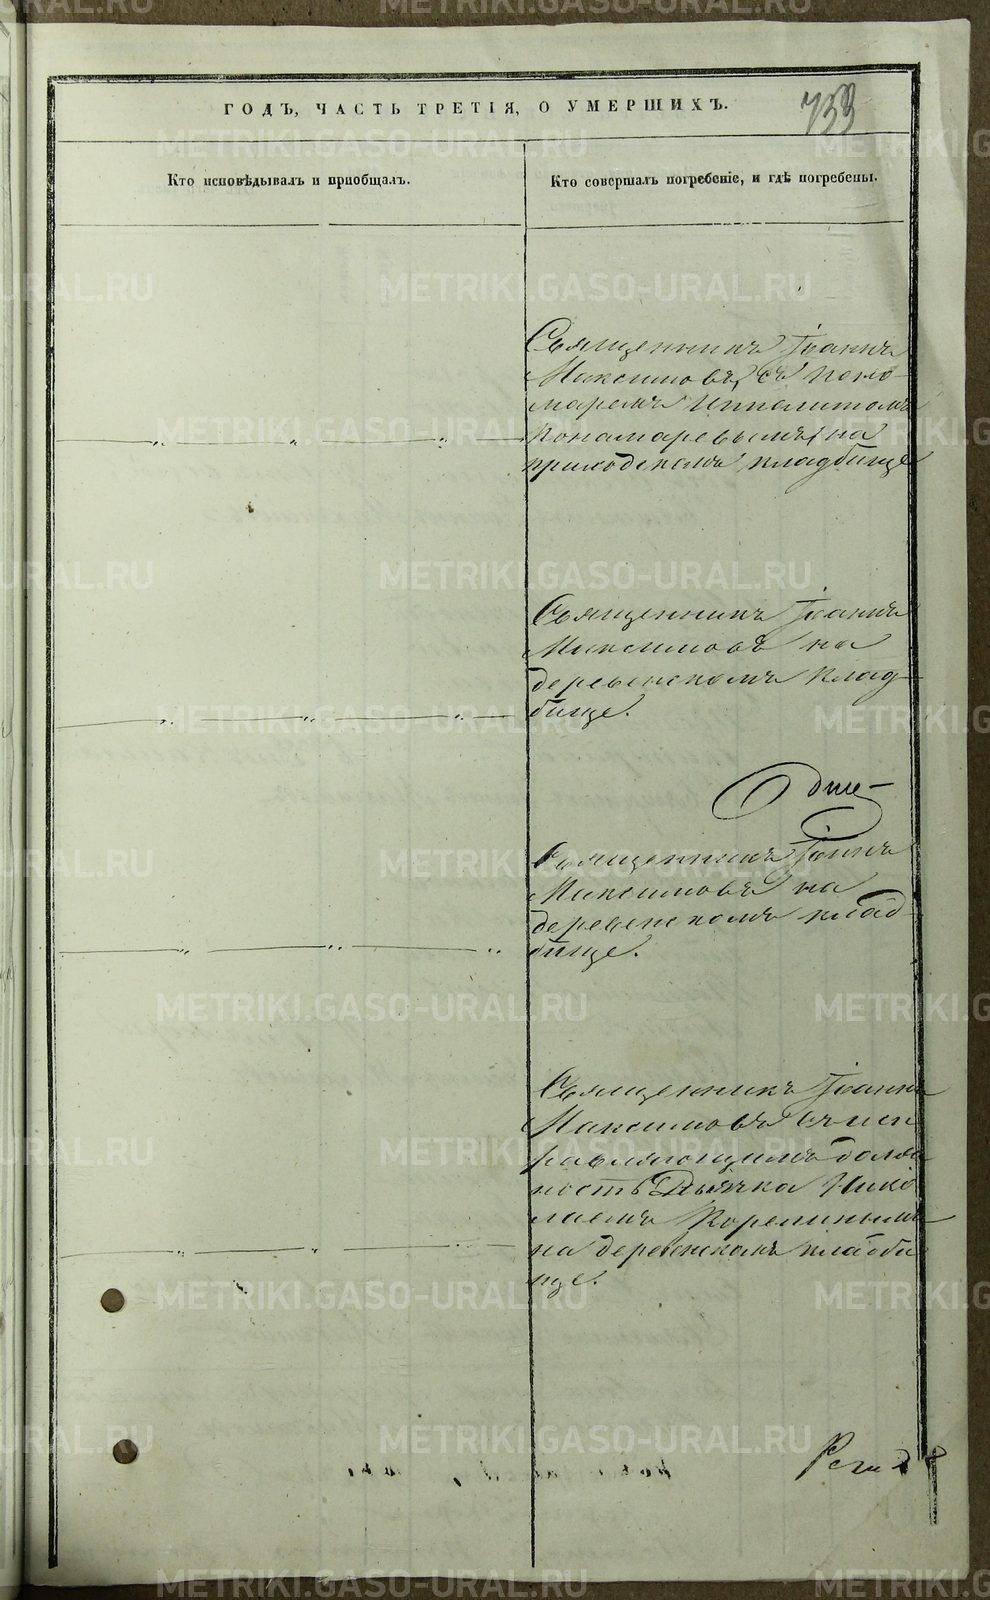 ГОДЪ, ЧАСТЬ ТРЕТІЯ, О УМЕРШИХЪ.
Кто исповѣдывалъ и пріобщалъ.
Кто совершалъ погребеніе, и гдѣ погребены.
Священникъ Іоаннъ
Максимовъ, съ поно-
маремъ Ипполитомъ
Пономаревымъ на
приходскомъ кладбище
Священникъ Іоаннъ
Максимовъ на
деревенскомъ клад-
бище.
Священникъ Іоаннъ
Максимовъ на
деревенскомъ клад-
бище.
Священникъ Іоаннъ
Максимовъ съ исп
равляющимъ долж
ность Дьячка Нико
лаемъ Корелинымъ
на деревенскомъ кладби
ще.
METRIKI.GASO-URAL.RU